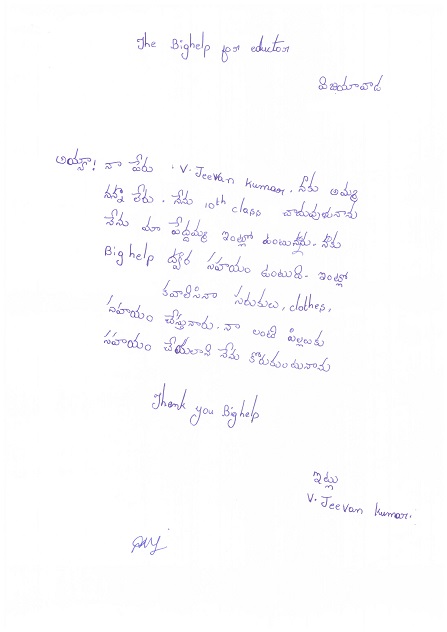 The Bighelp for eductor
విజయావాడ
అయ్యా! నా పేరు . V. Jeevan kumar. నాకు అమ్మ
నాన్న లేరు. నేను 10th class చాదువుతునాను
నేను మా పెద్దమ్మ ఇంట్లో వుంటున్నాను. నాకు
Big help ద్వార సహయం ఉంటుంది. ఇంట్లో
కావాలిసినా సరుకులు, clothes,
సహయం చేస్తునారు. నా లాంటి పిల్లలకు
సహయం చేయలాని నేను కోరుకుంటునాను
Thank you Bighelp
ఇట్లు
V. Jeevan kumar.